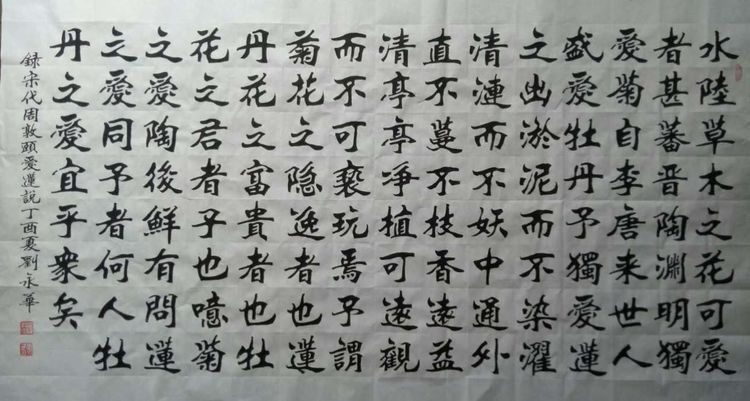 水陸草木之花可愛
者甚蕃晋陶淵明獨
愛菊自李唐来世人
盛愛牡丹予獨愛蓮
之出淤泥而不染濯
清漣而不妖中通外
直不蔓不枝香遠益
清亭亭净植可遠觀
而不可褻玩焉予謂
菊花之隐逸者也蓮
丹花之富貴者也牡
花之君者子也噫菊
之愛陶後鮮有問蓮
之愛同予者何人牡
丹之愛宜乎衆矣
録宋代周敦頤愛蓮説丁酉夏劉永華